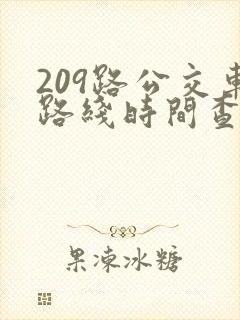 209路公交車
路綫時間查
果凍冰糖